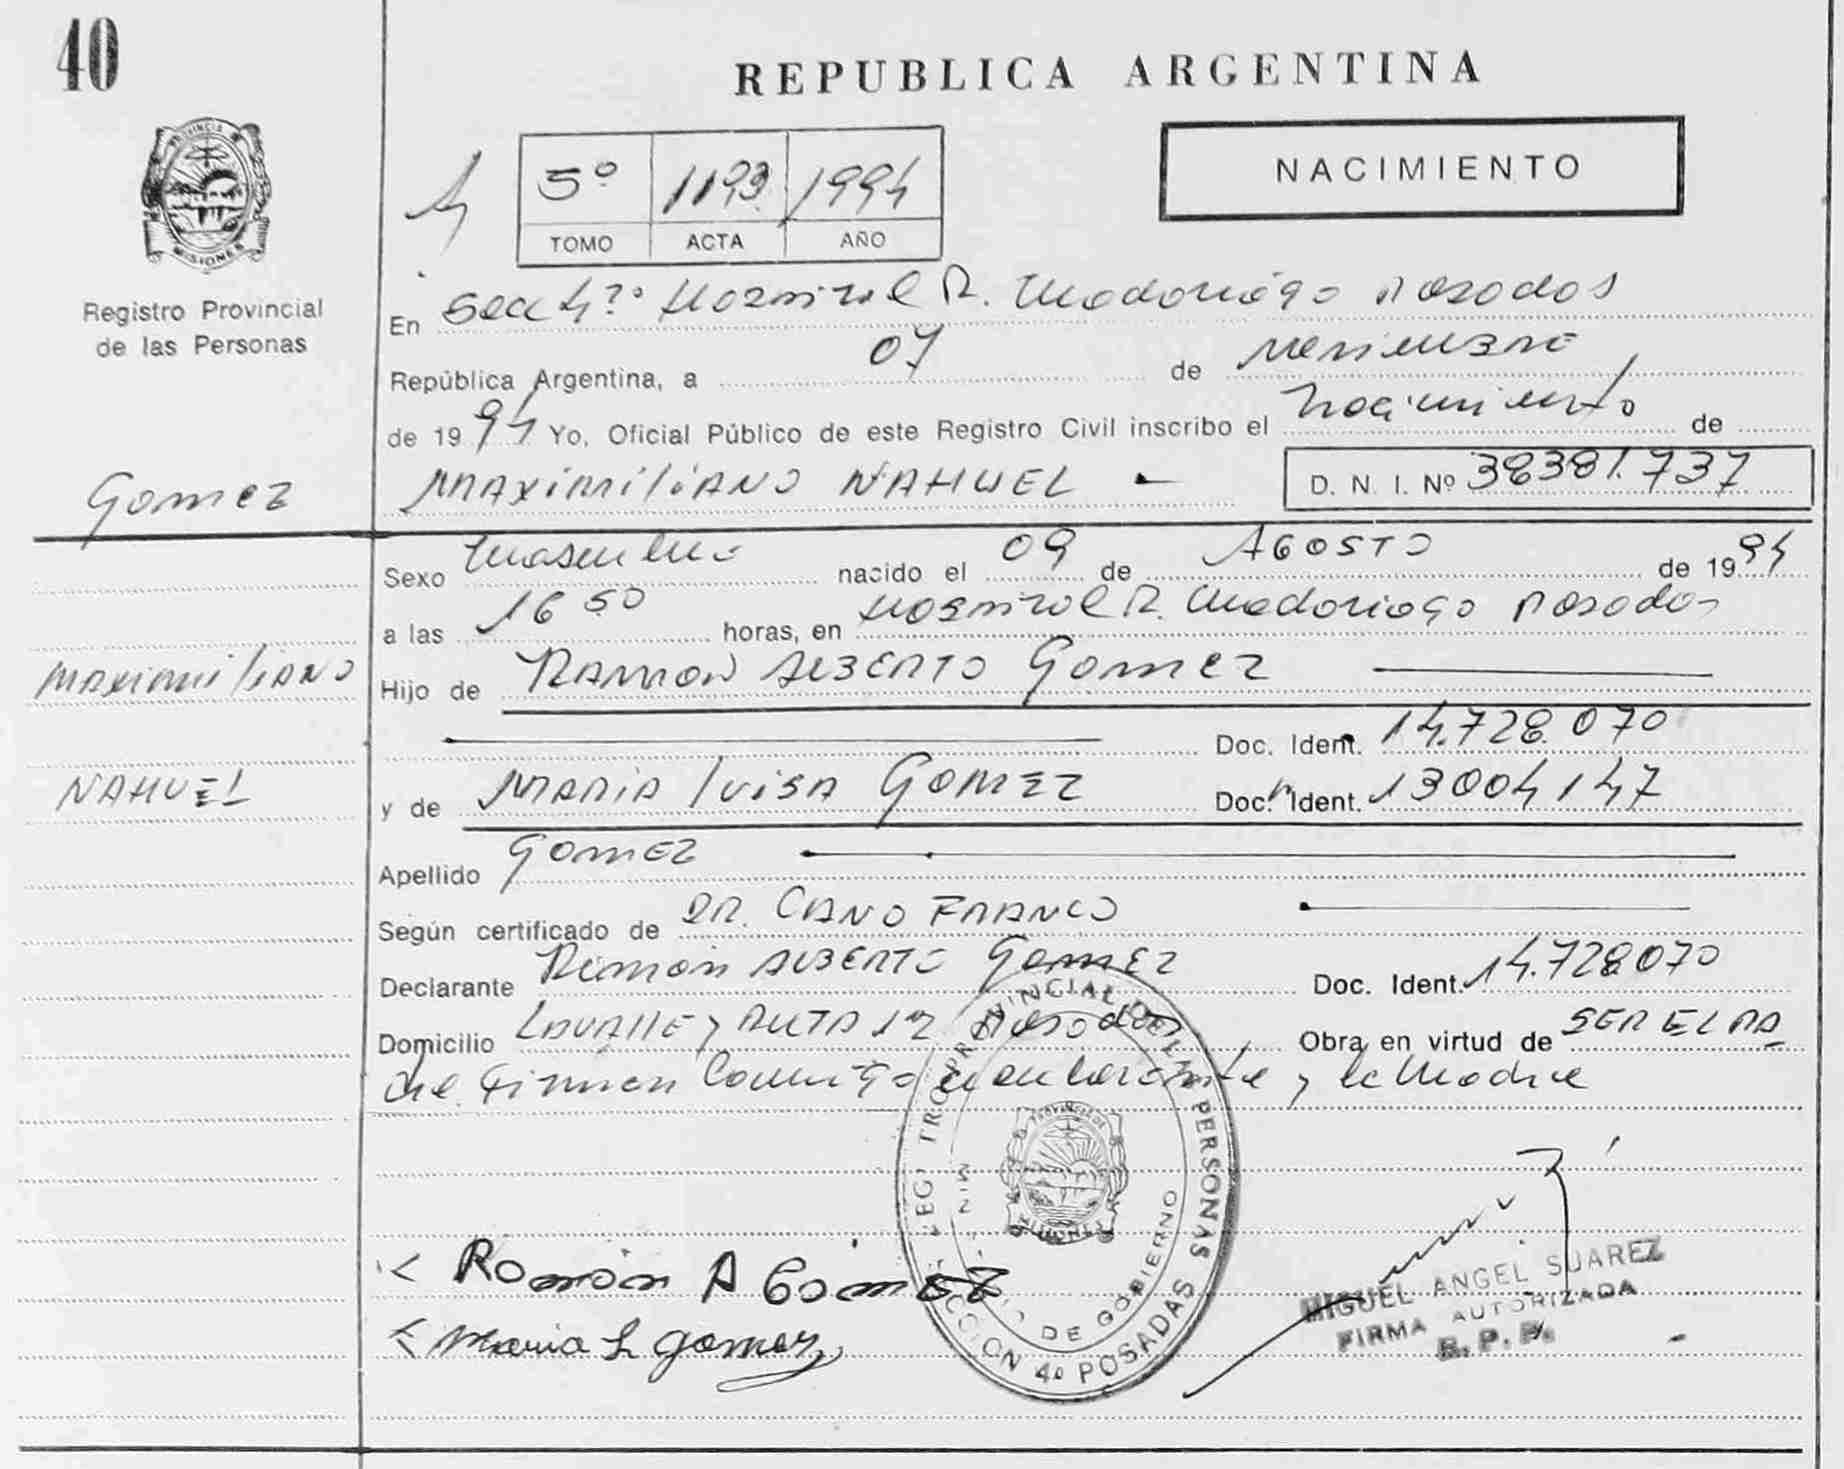 40
REPUBLICA ARGENTINA
NACIMIENTO
5º 1193 1994
TOMO ACTA AÑO
PROVINCIA DE MISIONES
Registro Provincial
de las Personas
En Secc 4ta Hospital R. Madariaga Posadas
República Argentina, a 07 de Septiembre
de 1994 Yo, Oficial Público de este Registro Civil inscribo el Nacimiento de
Gomez
MAXIMILIANO NAHUEL -
D. N. I. Nº 38381.737
Sexo Masculino nacido el 09 de AGOSTO de 1994
a las 16 50 horas, en Hospital R. Madariaga Posadas
MAXIMILIANO
Hijo de RAMON ALBERTO GOMEZ
Doc. Ident. 14.728.070
NAHUEL
y de MARIA LUISA GOMEZ Doc. Ident. 13004147
Apellido GOMEZ
Según certificado de DR. CANO FRANCO
Declarante Ramón ALBERTO GOMEZ Doc. Ident. 14.728070
Domicilio LAVALLE y RUTA 12 Posadas Obra en virtud de SER EL PA
dre. Firman Conmigo el declarante y la Madre
REGISTRO PROVINCIAL DE LAS PERSONAS
DE GOBIERNO
SECCION 4º POSADAS
Ramón A Gómez
Maria L gomez
MIGUEL ANGEL SUAREZ
FIRMA AUTORIZADA
R. P. P.